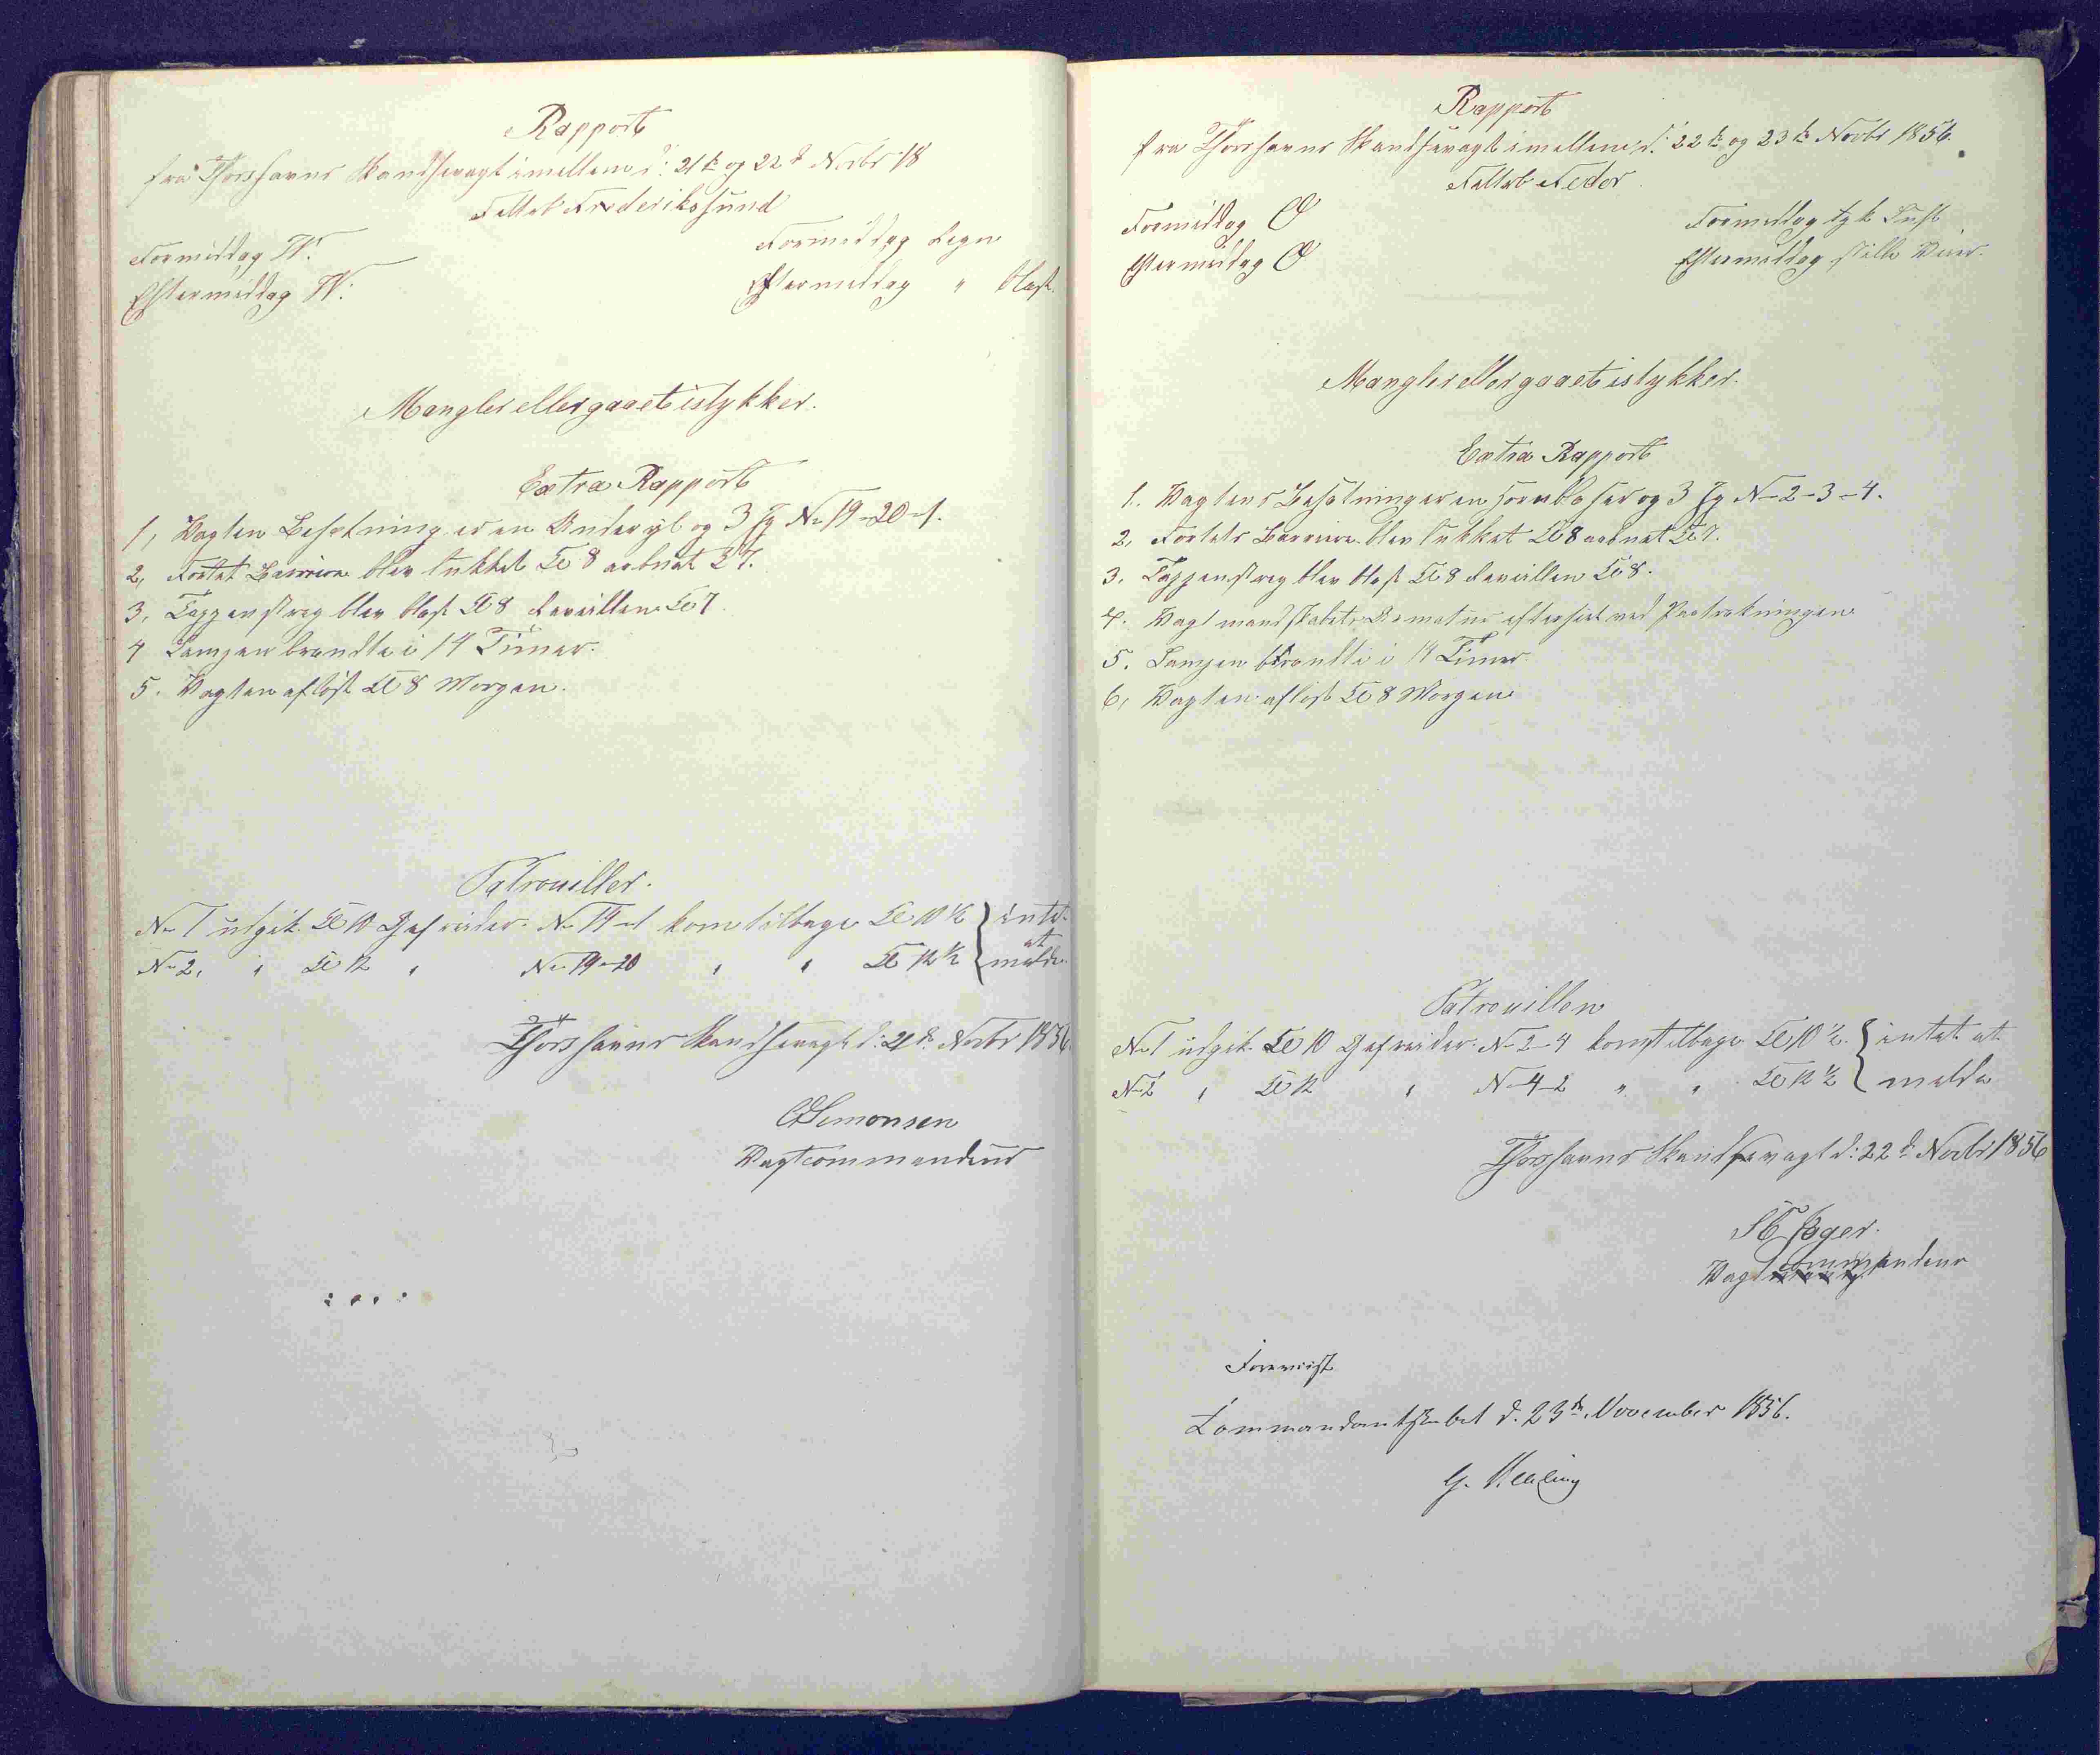 Rapport
fra Thorshavns Skandsevagt imellem d: 21de og 22de Novbr 18
Feltet Frederikssund
Formiddag W.
Eftermiddag W.
Formiddag Regn
Eftermiddag " Blæst.
Mangler eller gaaet istykker.
Extra Rapport
1, Vagten Besætning er en Underjæ og 3 Jg No 19-20-1.
2, Fortet Barriere blev lukket Kl 8 aabnet Kl 7.
3, Tappenstreg blev blæst Kl 8 Reveillen Kl 7
4 Lampen brændte i 14 Timer.
5. Vagten afløst Kl 8 Morgen.
Patrouiller.
No 1 udgik Kl 10 Gefreider No 19-1 kom tilbage Kl 10 ½ } intet
at
No 2, " Kl 12 " No 19-20 " " Kl 12 ½ melde.
Thorshavns Skandsevagt d: 21de Novbr 1856.
Simonsen
Vagtcommandeur
Rapport
fra Thorshavns Skandsevagt imellem d: 22de og 23de Novbr 1856.
Feltet Feder.
Formiddag O
Eftermiddag O
Formiddag tyk Luft
Eftermiddag stille Veir.
Mangler eller gaaet istykker.
Extra Rapport
1. Vagtens Besætning er en Hornblæser og 3 Jg No 2-3-4.
2, Fortets Barriere blev lukket Kl 8 aabnet Kl 7.
3. Tappenstreg blev blæst Kl 8 Reveillen Kl 8.
4. Vagtmandskabets Armatur efterset ved Fratrækningen
5. Lampen brændte i 14 Timer.
6, Vagten afløst Kl 8 Morgen
Patrouillen
No 1 udgik Kl 10 Gefreider No 2-4 kom tilbage Kl 10 ½ { intet at
No 2 " Kl 12 " No 4-2 " " Kl 12 ½ { melde
Thorshavns Skandsevagt d: 22de Novbr 1856
Jæger.
Vagtcommandeur
Foreviist
Commandantskabet d. 23de November 1856.